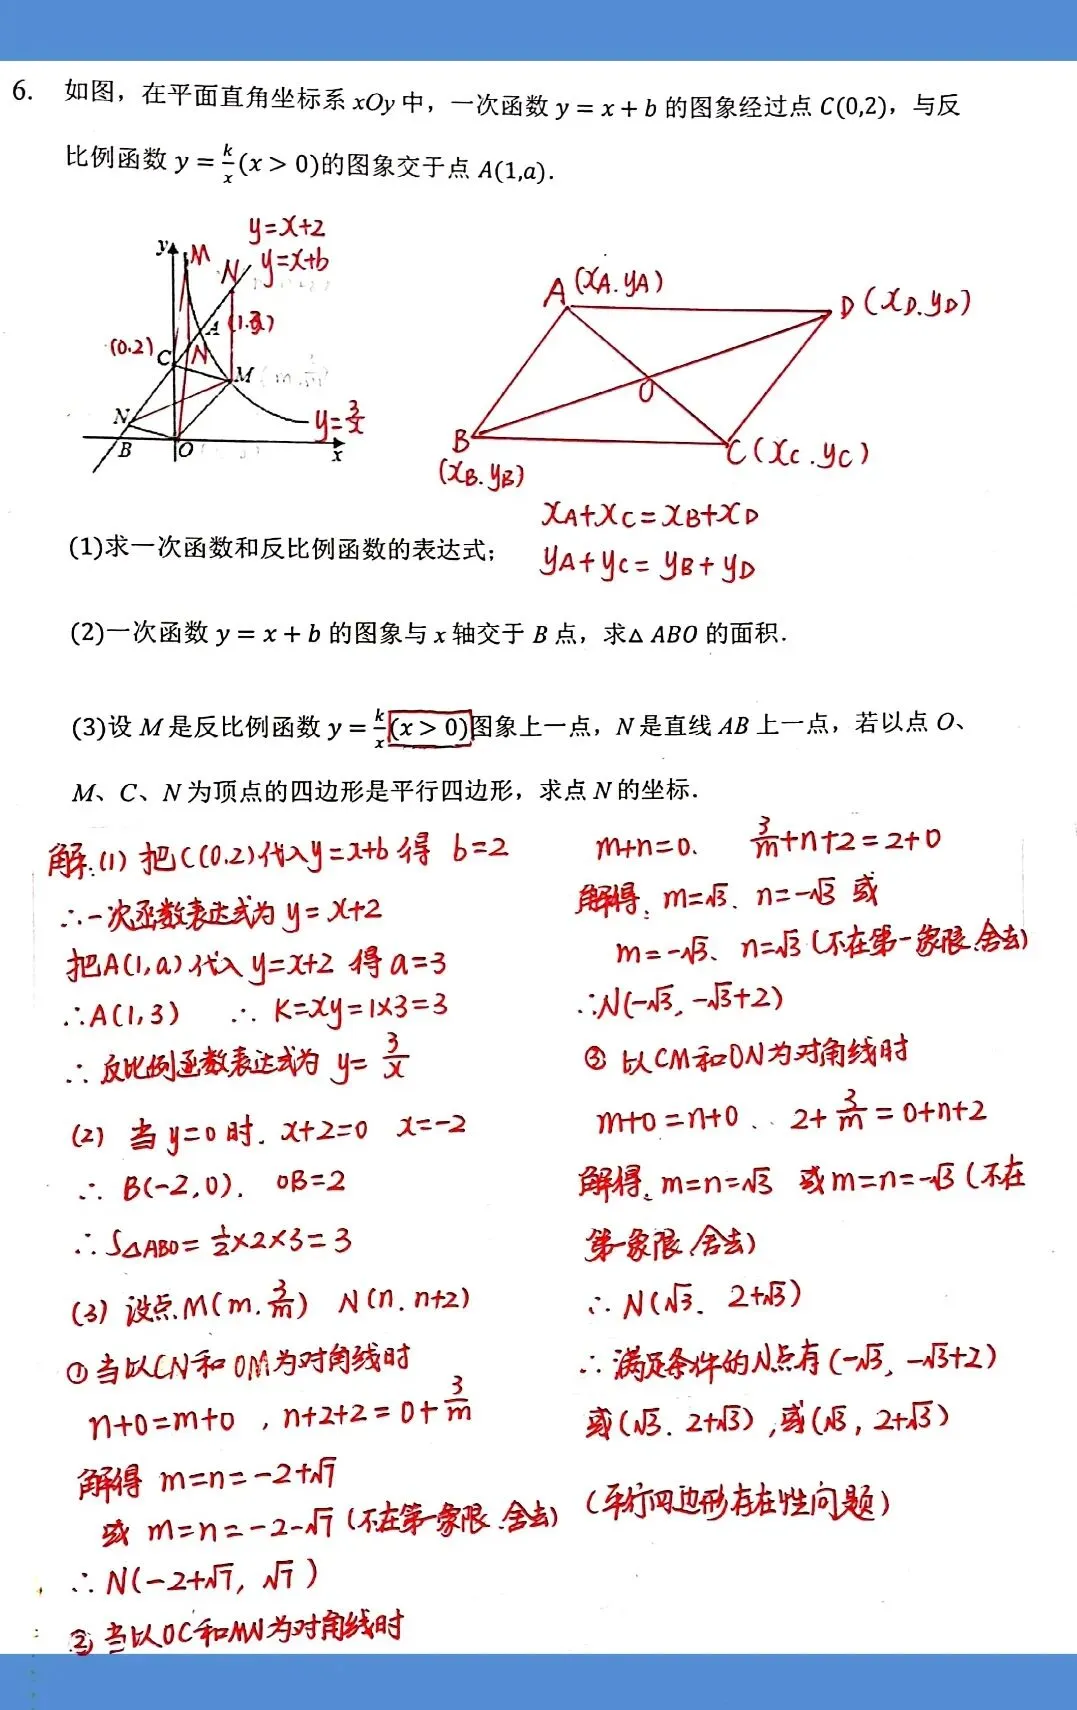 6. 如图，在平面直角坐标系 xOy 中，一次函数 y = x + b 的图象经过点 C(0,2)，与反
比例函数 y = k/x (x > 0)的图象交于点 A(1,a).
y=x+2
y=x+b
y
M
N
A
(1.3)
(0.2)
C
N
M
N
B
O
x
y=3/x
A (xA.yA)
D (xD.yD)
O
B
(xB.yB)
C (xC.yC)
xA+xC=xB+xD
yA+yC=yB+yD
(1)求一次函数和反比例函数的表达式；
(2)一次函数 y = x + b 的图象与 x 轴交于 B 点，求△ ABO 的面积.
(3)设 M 是反比例函数 y = k/x (x > 0)图象上一点，N 是直线 AB 上一点，若以点 O、
M、C、N 为顶点的四边形是平行四边形，求点 N 的坐标.
解:(1) 把C(0.2)代入y=x+b 得 b=2
∴一次函数表达式为 y=x+2
把A(1,a)代入 y=x+2 得 a=3
∴A(1,3) ∴ K=xy=1×3=3
∴ 反比例函数表达式为 y=3/x
(2) 当 y=0 时. x+2=0 x=-2
∴ B(-2,0). OB=2
∴ S△ABO=1/2×2×3=3
(3) 设点M(m.3/m) N(n.n+2)
① 当以CN和OM为对角线时
n+0=m+0 , n+2+2=0+3/m
解得 m=n=-2+√7
或 m=n=-2-√7 (不在第一象限.舍去)
∴ N(-2+√7, √7)
② 当以OC和MN为对角线时
m+n=0. 3/m+n+2=2+0
解得. m=√3. n=-√3 或
m=-√3. n=√3 (不在第一象限.舍去)
∴N(-√3, -√3+2)
③ 以CM和ON为对角线时
m+0=n+0 .. 2+3/m=0+n+2
解得. m=n=√3 或m=n=-√3 (不在
第一象限.舍去)
∴ N(√3. 2+√3)
∴ 满足条件的N点有(-√3, -√3+2)
或(√3. 2+√3),或(√3, 2+√3)
(平行四边形存在性问题)